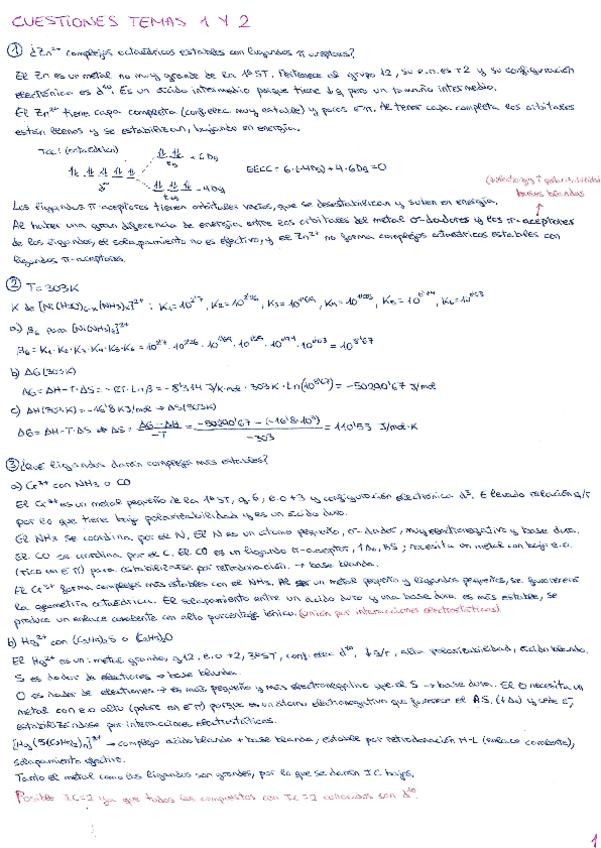 CUESTIONES TEMAS 1 Y 2
① ¿Zn²⁺ complejos octaédricos estables con ligandos π aceptores?
El Zn es un metal no muy grande de la 1ª ST. Pertenece al grupo 12, su e.o. es +2 y su configuración
electrónica es d¹⁰. Es un ácido intermedio porque tiene ↓ q pero un tamaño intermedio.
El Zn²⁺ tiene capa completa (conf. elec. muy estable) y pocos e⁻π. Al tener capa completa los orbitales
están llenos y se estabilizan, bajando en energía.
TCC: (octaédrico)
eg + 6Dq
EECC = 6·(-4Dq) + 4·6Dq = 0
d¹⁰
t2g - 4Dq
bases blandas
Los ligandos π-aceptores tienen orbitales vacíos, que se desestabilizan y suben en energía.
Al haber una gran diferencia de energía entre los orbitales del metal σ-dadores y los π-aceptores
de los ligandos, el solapamiento no es efectivo, y el Zn²⁺ no forma complejos octaédricos estables con
ligandos π-aceptores.
② T = 303K
K de [Ni(H₂O)₆₋ₓ(NH₃)ₓ]²⁺ :
a) β₆ para [Ni(NH₃)₆]²⁺
β₆ = K₁·K₂·K₃·K₄·K₅·K₆ = = 10^8'67
b) ΔG (303K)
ΔG = ΔH - T·ΔS = -RT·Lnβ = -8'314 J/K·mol · 303K · Ln(10^8'67) = -50290'67 J/mol
c) ΔH (303K) = -16'8 KJ/mol → ΔS (303K)
ΔG = ΔH - T·ΔS → ΔS = ΔG - ΔH / -T = -50290'67 - (-16'8·10³) / -303 = 110'53 J/mol·K
③ ¿Qué ligandos darán complejos más estables?
a) Cr³⁺ con NH₃ o CO
El Cr³⁺ es un metal pequeño de la 1ª ST, g.6, e.o +3 y configuración electrónica d³. Elevada relación q/r
por lo que tiene baja polarizabilidad y es un ácido duro.
El NH₃ se coordina por el N. El N es un átomo pequeño, σ-dador, muy electronegativo y base dura.
El CO se coordina por el C. El CO es un ligando π-aceptor, necesita un metal con bajo e.o.
(rico en e⁻π) para estabilizarse por retrodonación. → base blanda.
El Cr³⁺ forma complejos más estables con el NH₃. Al ser un metal pequeño y ligandos pequeños, se favorecerá
la geometría octaédrica. El solapamiento entre un ácido duro y una base dura es más estable, se
produce un enlace covalente con alto porcentaje iónico. (unión por interacciones electrostáticas)
b) Hg²⁺ con (C₂H₅)₂S o (C₂H₅)₂O
El Hg²⁺ es un metal grande, g.12, e.o +2, 3ª ST, conf. elec d¹⁰, ↓ q/r, alta polarizabilidad, ácido blando.
S es dador de electrones → base blanda.
O es dador de electrones → es más pequeño y más electronegativo que el S → base dura. El O necesita un
metal con e.o alto (pobre en e⁻π) porque es un átomo electronegativo que
estabilizándose por interacciones electrostáticas.
[Hg(S(C₂H₅)₂)ₙ]²⁺ → complejo ácido blando + base blanda, estable por retrodonación M-L (enlace covalente),
solapamiento efectivo.
Tanto el metal como los ligandos son grandes, por lo que se darán I.C bajos.
Posible I.C=2 ya que todos los compuestos con I.C = 2 conocidos son d¹⁰.
1